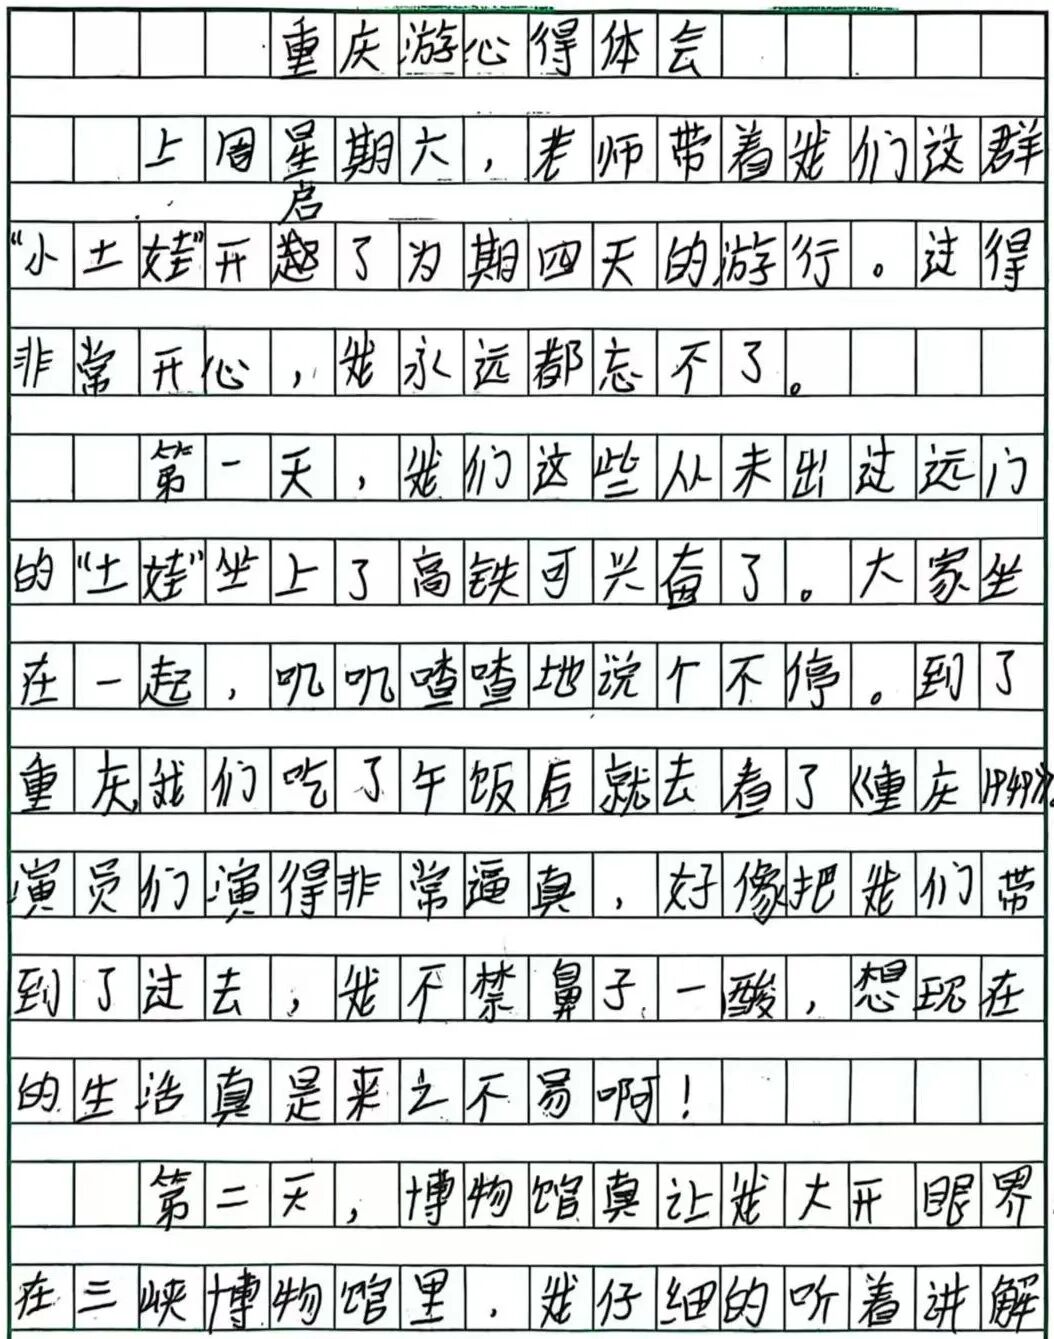 重庆游心得体会
上周星期六，老师带着我们这群
启
“小土娃”开趣了为期四天的游行。过得
非常开心，我永远都忘不了。
第一天，我们这些从未出过远门
的“土娃”坐上了高铁可兴奋了。大家坐
在一起，叽叽喳喳地说个不停。到了
重庆，我们吃了午饭后就去看了《重庆1949》。
演员们演得非常逼真，好像把我们带
到了过去，我不禁鼻子一酸，想现在
的生活真是来之不易啊！
第二天，博物馆真让我大开眼界.
在三峡博物馆里，我仔细的听着讲解